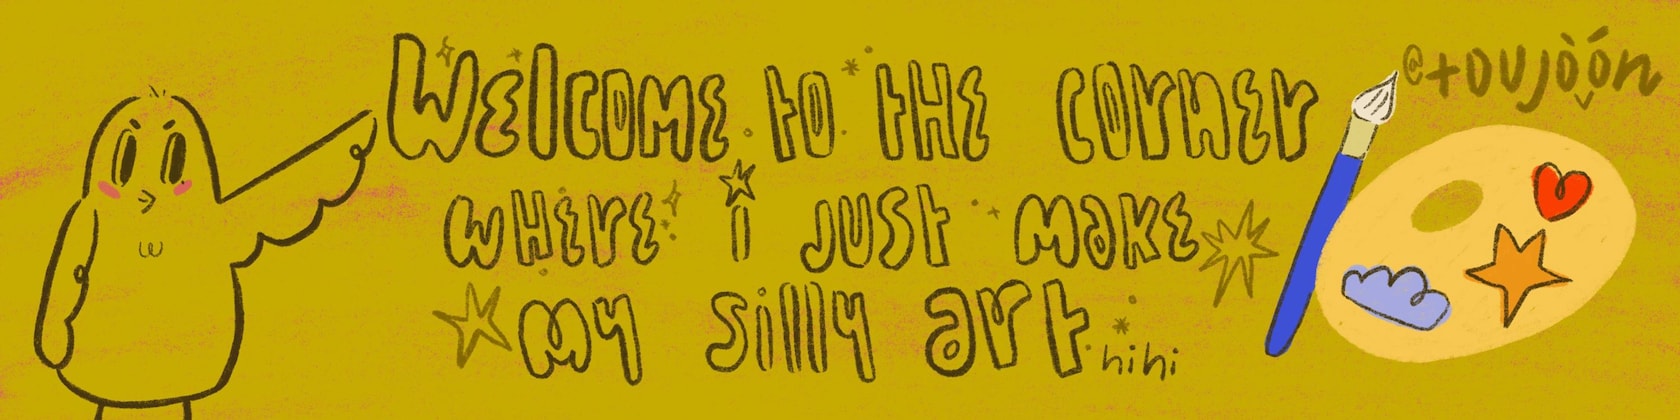 Welcome to the corner
where i just make
my silly art
hihi
@toujòón